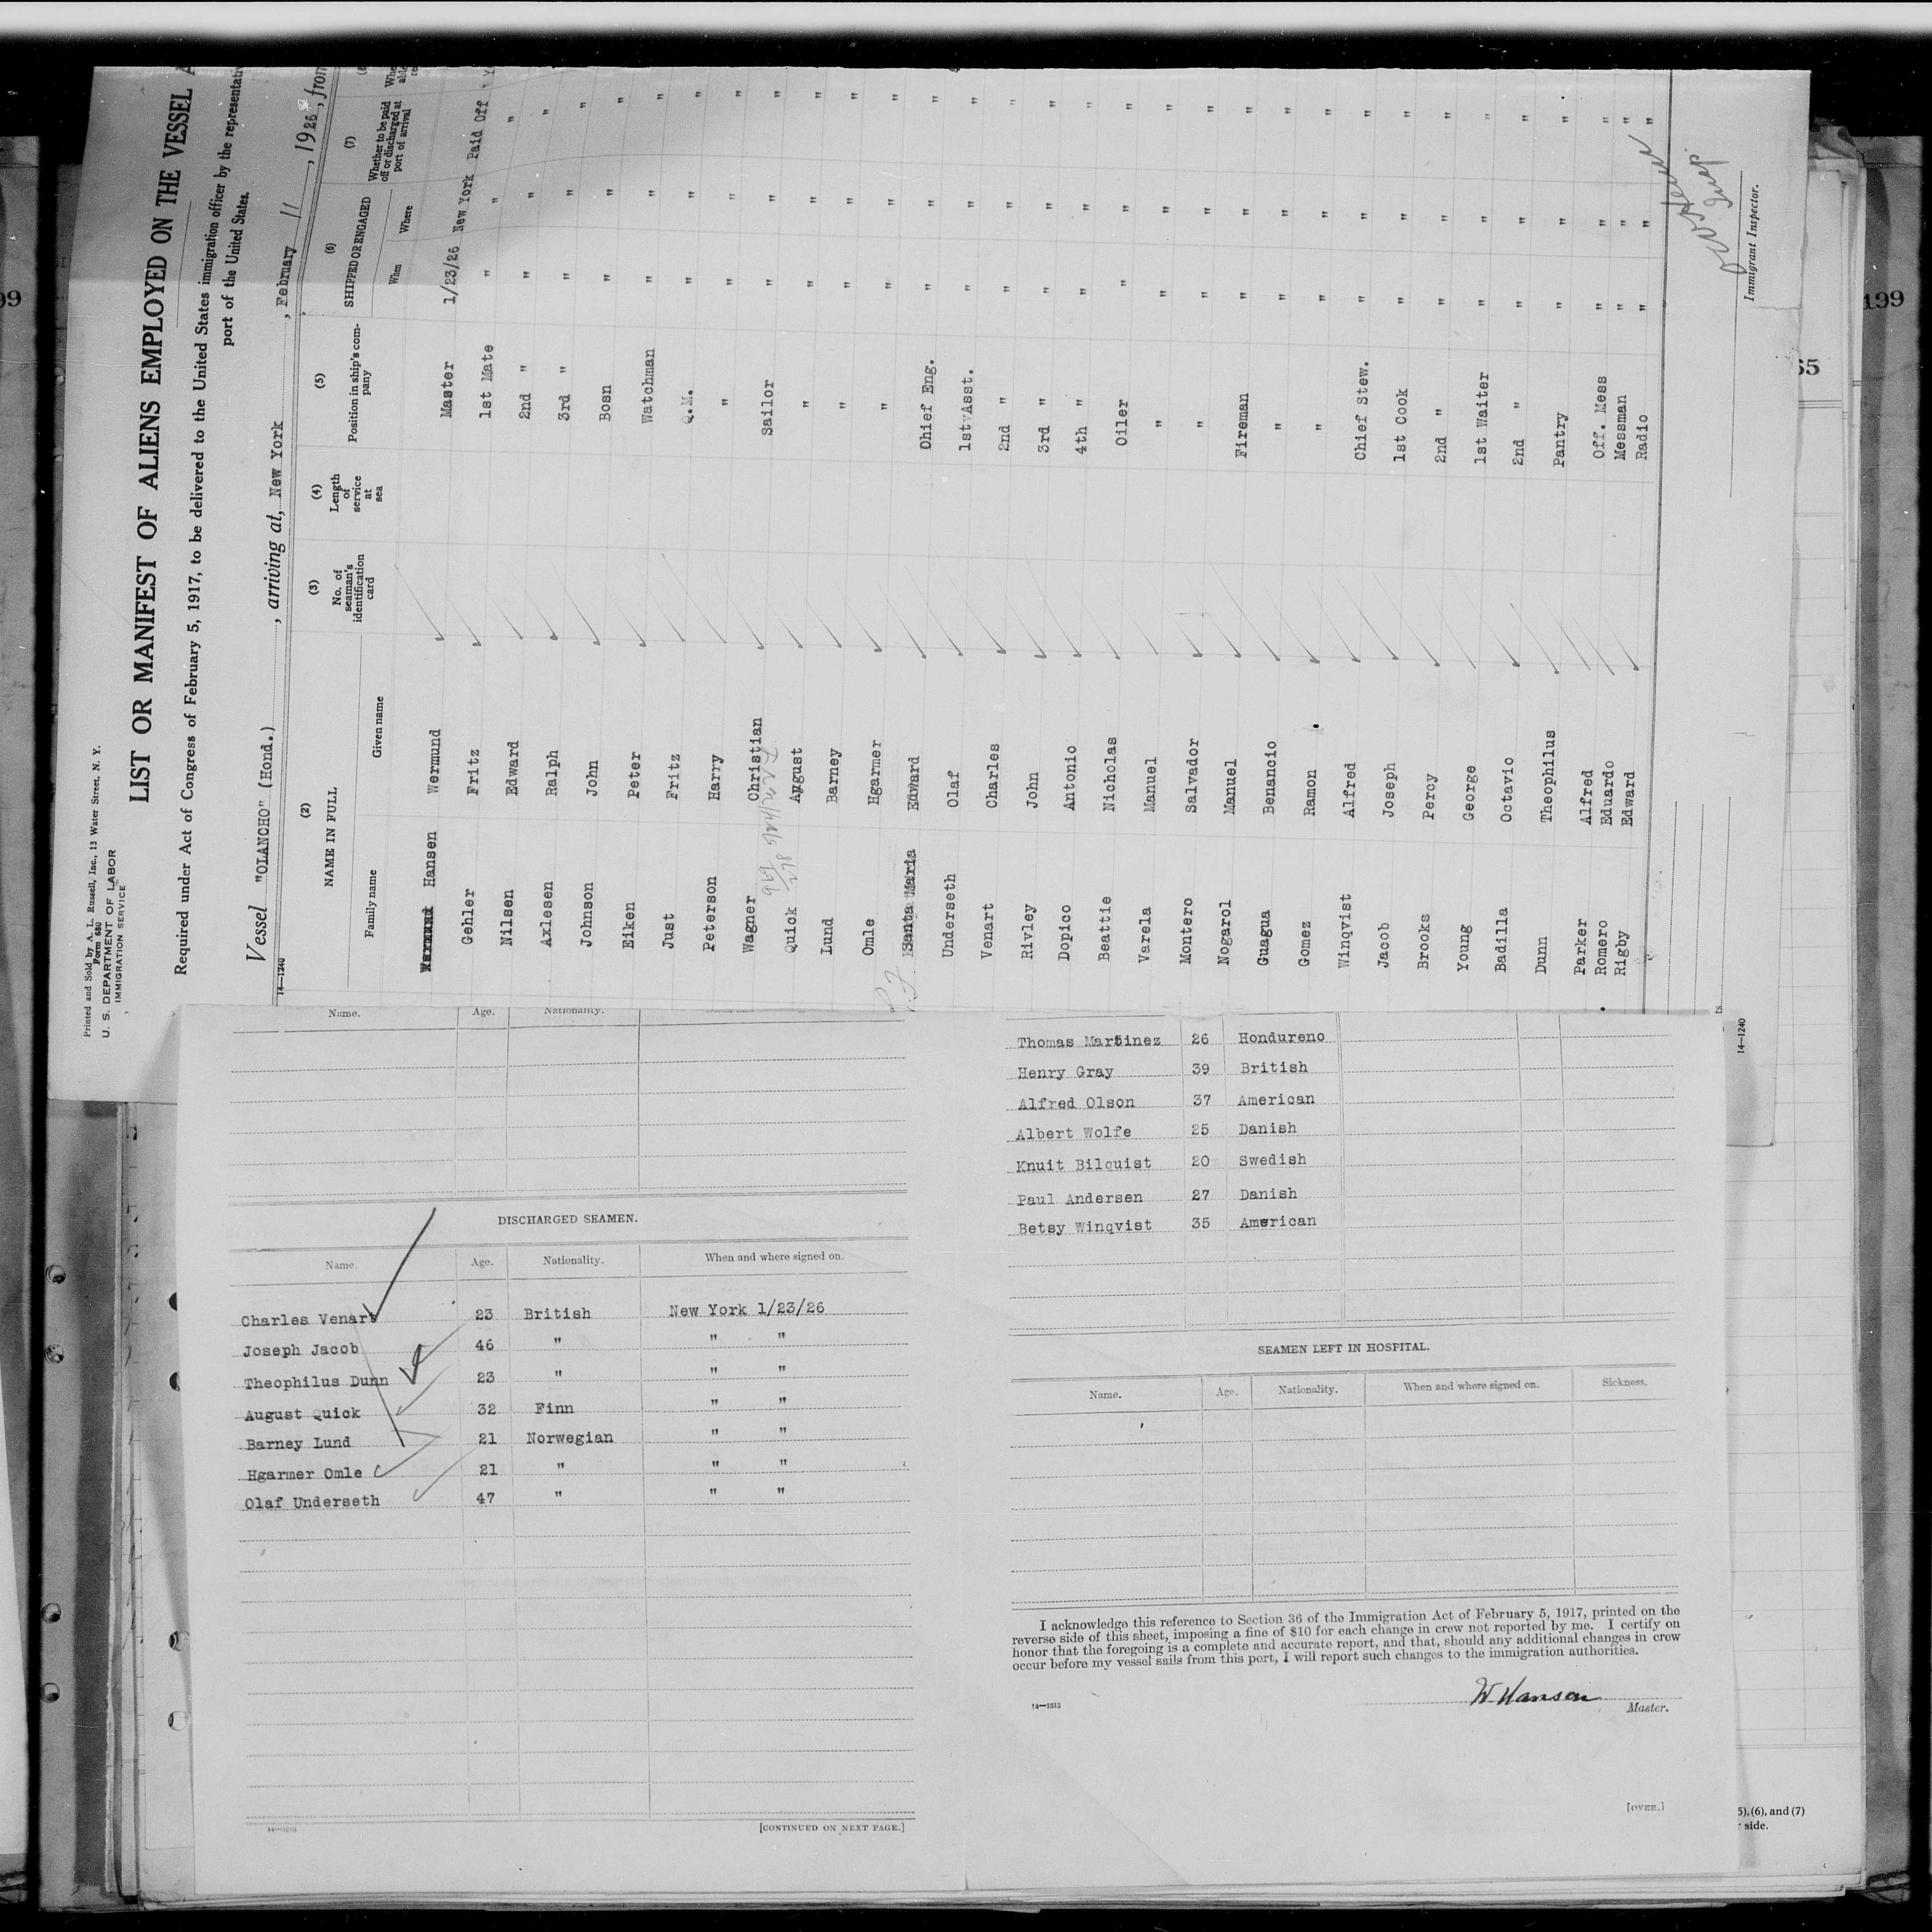 Printed and Sold by A. L. Russell, Inc., 13 Water Street, N. Y.
Form 680
U. S. DEPARTMENT OF LABOR
IMMIGRATION SERVICE
LIST OR MANIFEST OF ALIENS EMPLOYED ON THE VESSEL A
Required under Act of Congress of February 5, 1917, to be delivered to the United States immigration officer by the representativ
port of the United States.
Vessel "OLANCHO" (Hond.), arriving at, New York, February 11, 1926, from
14—1240
(2) (3) (4) (5) (6) (7)
NAME IN FULL No. of seaman's identification card Length of service at sea Position in ship's company SHIPPED OR ENGAGED Whether to be paid off or discharged at port of arrival
Family name Given name When Where
Hansen Wermund Master 1/23/26 New York Paid Off
Gehler Fritz 1st Mate " " "
Nilsen Edward 2nd " " " "
Axlesen Ralph 3rd " " " "
Johnson John Bosn " " "
Eiken Peter Watchman " " "
Just Fritz Q.M. " " "
Peterson Harry " " " "
Wagner Christian Sailor " " "
Quick August " " " "
Lund Barney " " " "
Omle Hgarmer " " " "
Santa Maria Edward Chief Eng. " " "
Underseth Olaf 1st Asst. " " "
Venart Charles 2nd " " " "
Rivley John 3rd " " " "
Dopico Antonio 4th " " " "
Beattie Nicholas Oiler " " "
Varela Manuel " " " "
Montero Salvador " " " "
Nogarol Manuel Fireman " " "
Guagua Benancio " " " "
Gomez Ramon " " " "
Winqvist Alfred Chief Stew. " " "
Jacob Joseph 1st Cook " " "
Brooks Percy 2nd " " " "
Young George 1st Waiter " " "
Badilla Octavio 2nd " " " "
Dunn Theophilus Pantry " " "
Parker Alfred Off. Mess " " "
Romero Eduardo Messman " " "
Rigby Edward Radio " " "
Immigrant Inspector.
14—1240
Name. Age. Nationality.
DISCHARGED SEAMEN.
Name. Age. Nationality. When and where signed on.
Charles Venart 23 British New York 1/23/26
Joseph Jacob 46 " " "
Theophilus Dunn 23 " " "
August Quick 32 Finn " "
Barney Lund 21 Norwegian " "
Hgarmer Omle 21 " " "
Olaf Underseth 47 " " "
14—1613
[CONTINUED ON NEXT PAGE.]
Thomas Martinez 26 Hondureno
Henry Gray 39 British
Alfred Olson 37 American
Albert Wolfe 25 Danish
Knuit Bilquist 20 Swedish
Paul Andersen 27 Danish
Betsy Winqvist 35 American
SEAMEN LEFT IN HOSPITAL.
Name. Age. Nationality. When and where signed on. Sickness.
I acknowledge this reference to Section 36 of the Immigration Act of February 5, 1917, printed on the
reverse side of this sheet, imposing a fine of $10 for each change in crew not reported by me. I certify on
honor that the foregoing is a complete and accurate report, and that, should any additional changes in crew
occur before my vessel sails from this port, I will report such changes to the immigration authorities.
W. Hansen
Master.
14—1613
[OVER.]
99
199
5), (6), and (7)
side.